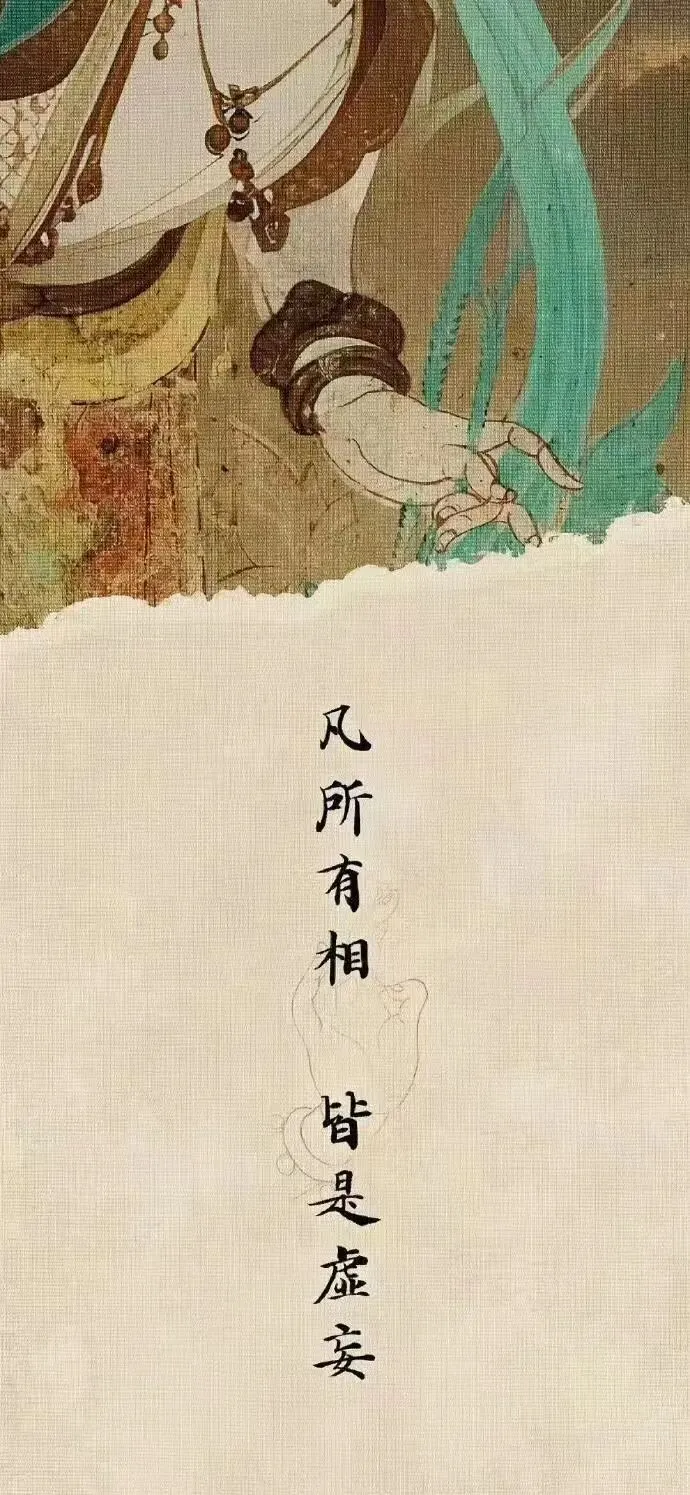 凡所有相
皆是虚妄